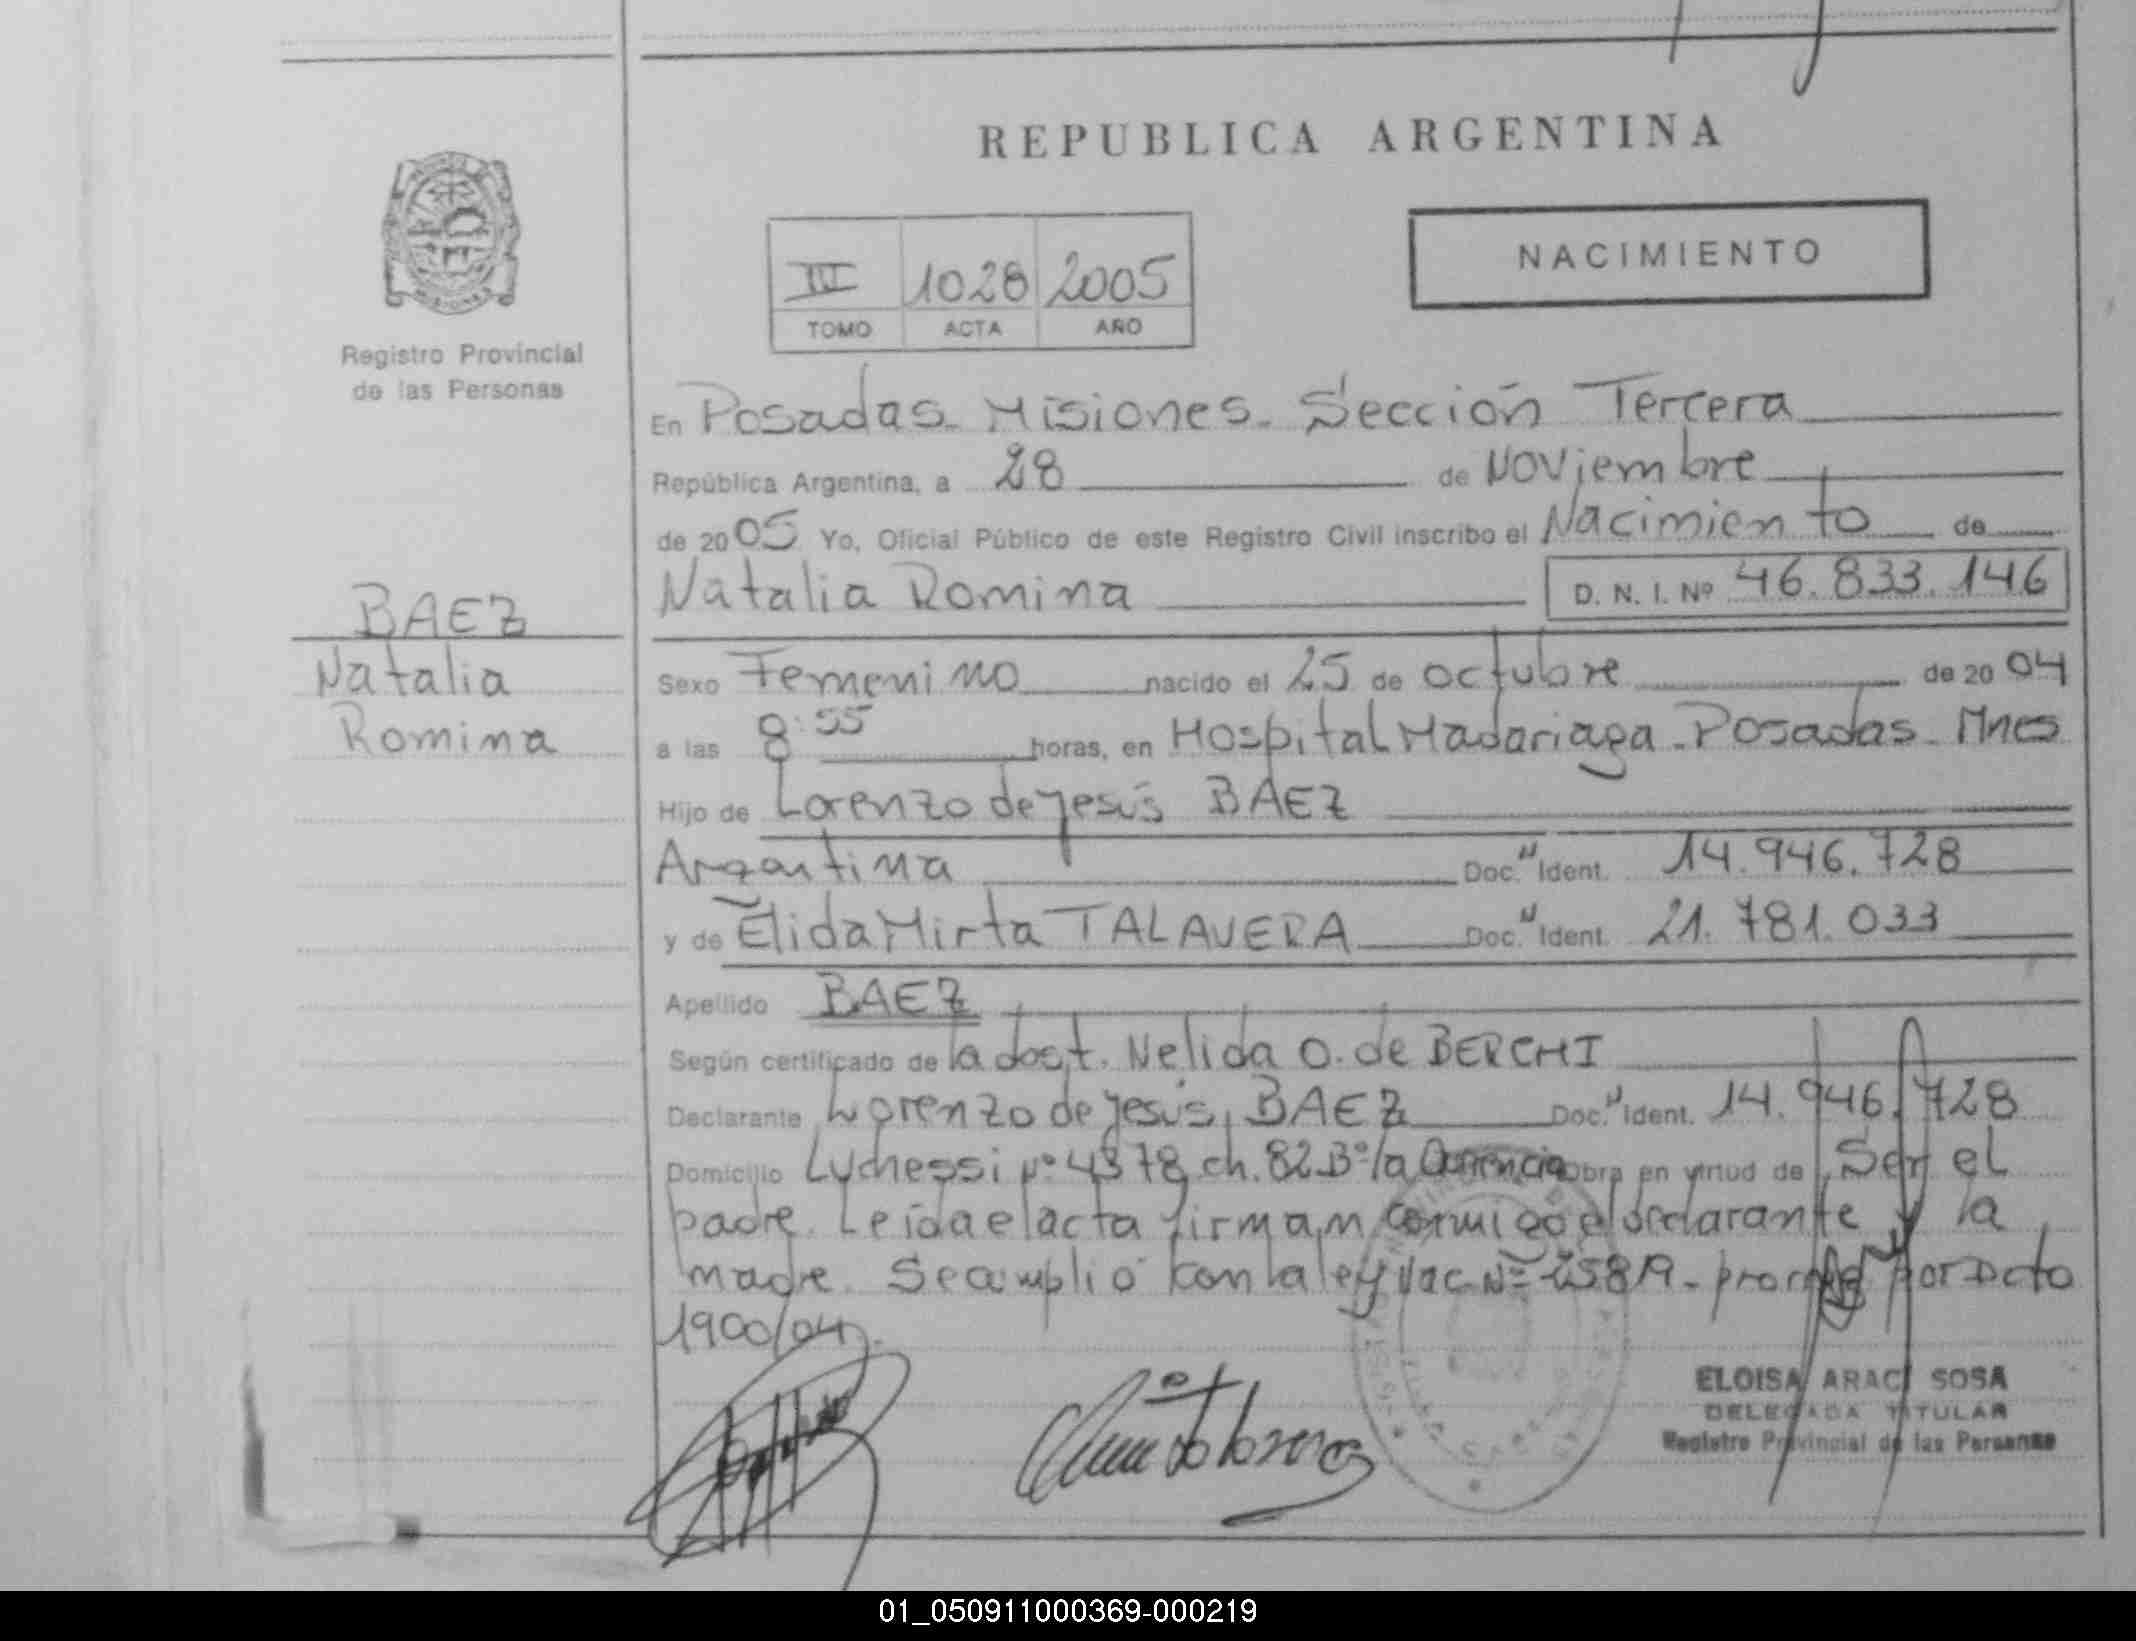 REPUBLICA ARGENTINA
NACIMIENTO
III 1028 2005
TOMO ACTA AÑO
MISIONES
Registro Provincial
de las Personas
En Posadas. Misiones. Sección Tercera
República Argentina, a 28 de Noviembre
de 2005 Yo, Oficial Público de este Registro Civil inscribo el Nacimiento de
Natalia Romina D. N. I. Nº 46.833.146
BAEZ
Natalia
Romina
Sexo Femenino nacido el 25 de octubre de 2004
a las 8:55 horas, en Hospital Madariaga. Posadas. Mnes
Hijo de Lorenzo de Jesús BAEZ
Argentina Doc. Ident. 14.946.728
y de Elida Mirta TALAVERA Doc. Ident. 21.781.033
Apellido BAEZ
Según certificado de la dost. Nelida O. de BERCHI
Declarante Lorenzo de Jesús BAEZ Doc. Ident. 14.946.728
Domicilio Luchessi Nº 4378 ch. 82 Bº la Obra en virtud de Ser el
padre. Leída el acta firman conmigo el declarante y la
madre. Se cumplió con la ley Nac. Nº 25819. por Dcto
1900/04.
ELOISA ARACI SOSA
DELEGADA TITULAR
Registro Provincial de las Personas
01_050911000369-000219